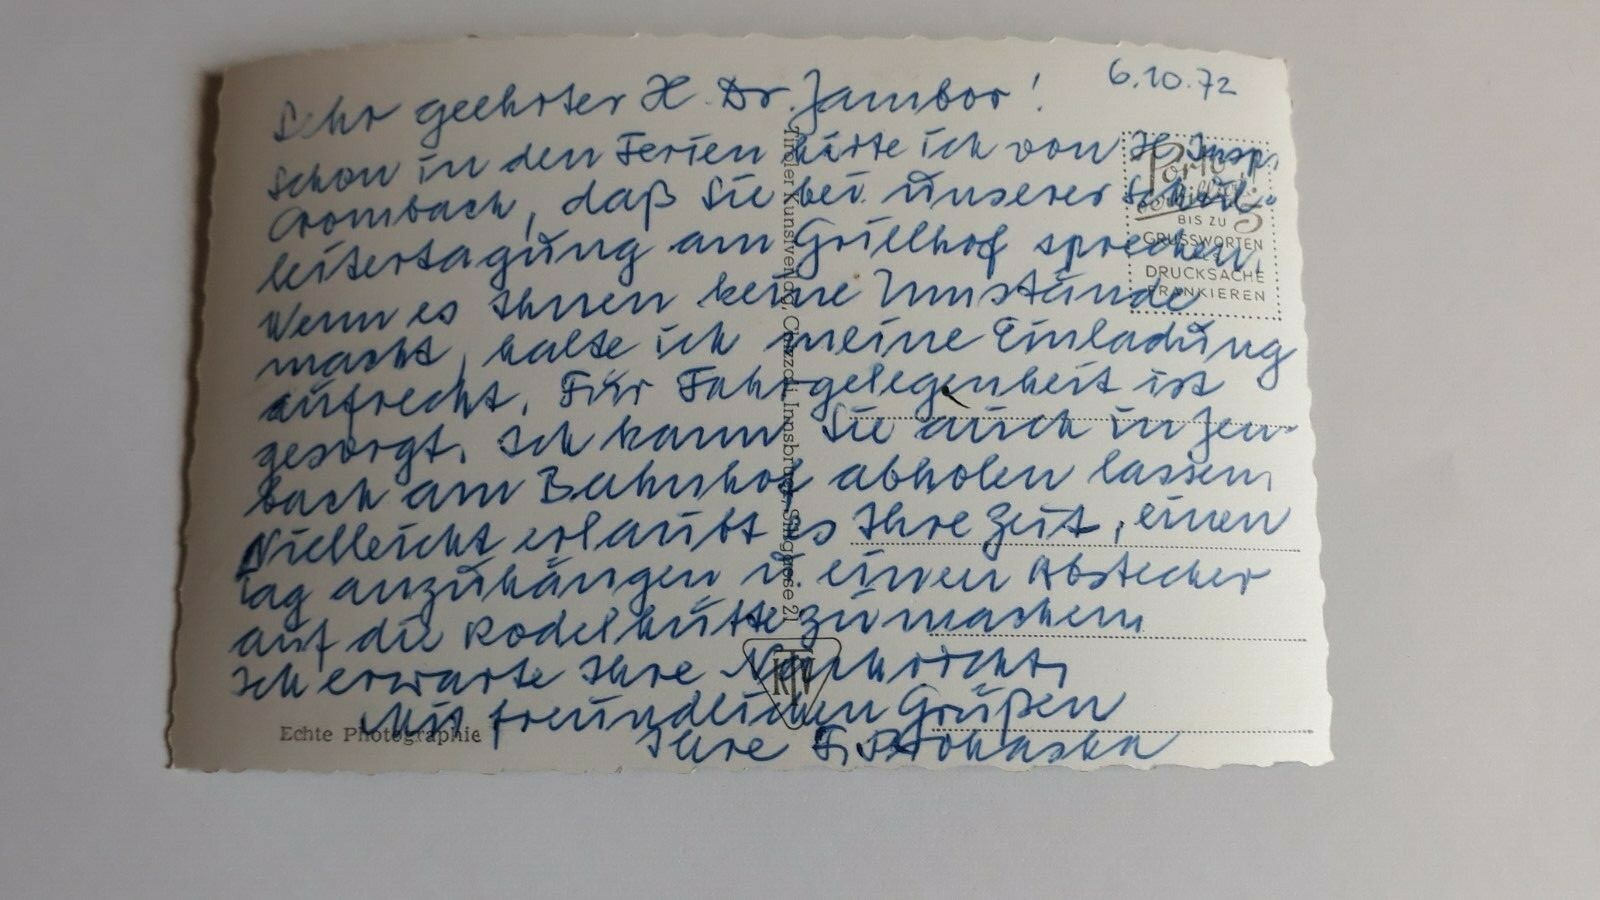 6.10.72
Sehr geehrter H. Dr. Jambor!
Schon in den Ferien hörte ich von H. Insp.
Crombach, daß Sie bei unserer Schul-
leitertagung am Grillhof sprechen.
Wenn es Ihnen keine Umstände
macht, halte ich meine Einladung
aufrecht. Für Fahrgelegenheit ist
gesorgt. Ich kann Sie auch in Jen-
bach am Bahnhof abholen lassen.
Vielleicht erlaubt es Ihre Zeit, einen
Tag anzuhängen u. einen Abstecher
auf die Rodelhütte zu machen.
Ich erwarte Ihre Nachricht.
Mit freundlichen Grüßen
Ihre F.
Porto
BIS ZU 5
GRUSSWORTEN
ALS
DRUCKSACHE
FRANKIEREN
Tiroler Kunstverlag Chizzali, Innsbruck, Sillgasse 21
KTV
Echte Photographie